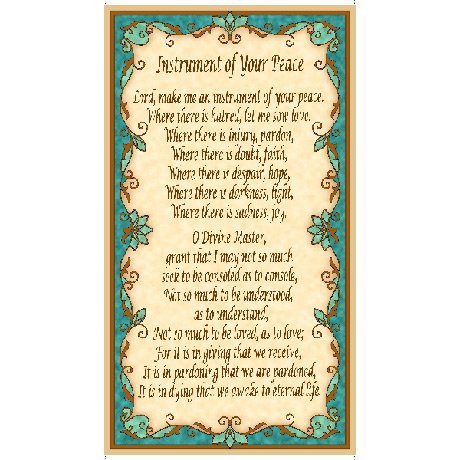 Instrument of Your Peace
Lord, make me an instrument of your peace.
Where there is hatred, let me sow love.
Where there is injury, pardon,
Where there is doubt, faith,
Where there is despair, hope,
Where there is darkness, light,
Where there is sadness, joy.
O Divine Master,
grant that I may not so much
seek to be consoled as to console,
Not so much to be understood,
as to understand,
Not so much to be loved, as to love;
For it is in giving that we receive,
It is in pardoning that we are pardoned,
It is in dying that we awake to eternal life.